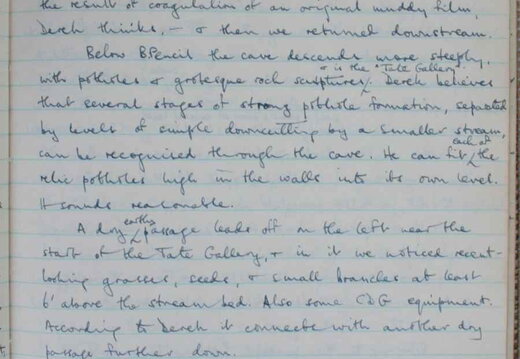 the result of coagulation of an original muddy film,
Derek thinks, — & then we returned downstream.
Below B Pencil the cave descends more steeply,
& is the "Tate Gallery".
with potholes & grotesque rock sculptures. Derek believes
that several stages of strong pothole formation, separated
by levels of simple downcutting by a smaller stream,
each of
can be recognised through the cave. He can fit the
relic potholes high in the walls into its own level.
It sounds reasonable.
earthy
A dry passage leads off on the left near the
start of the Tate Gallery, & in it we noticed recent-
looking grasses, seeds, & small branches at least
6' above the stream bed. Also some CDG equipment.
According to Derek it connects with another dry
passage further down.